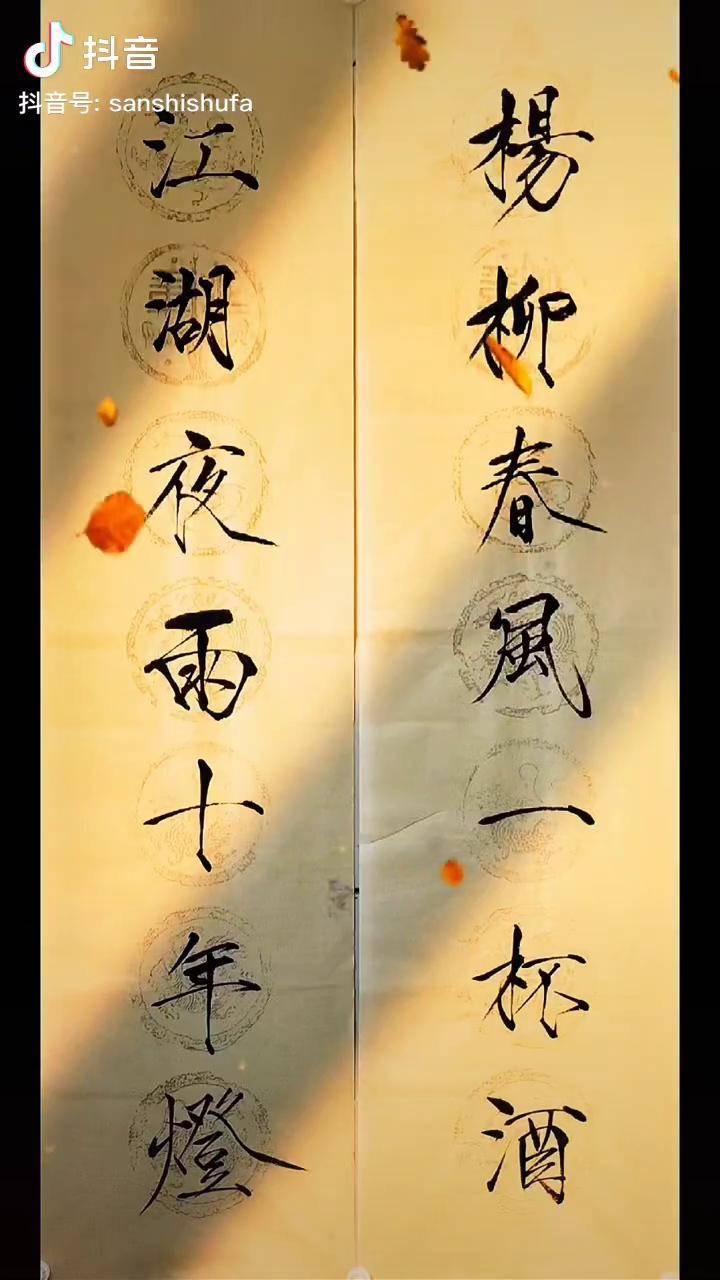 抖音
抖音号: sanshishufa
楊柳春風一杯酒
江湖夜雨十年燈